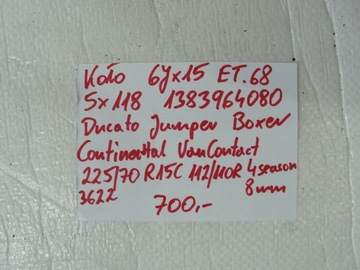 Koło 6Jx15 ET.68
5x118 1383964080
Ducato Jumper Boxer
Continental VanContact
225/70 R15C 112/110R 4season
3622 8mm
700,-